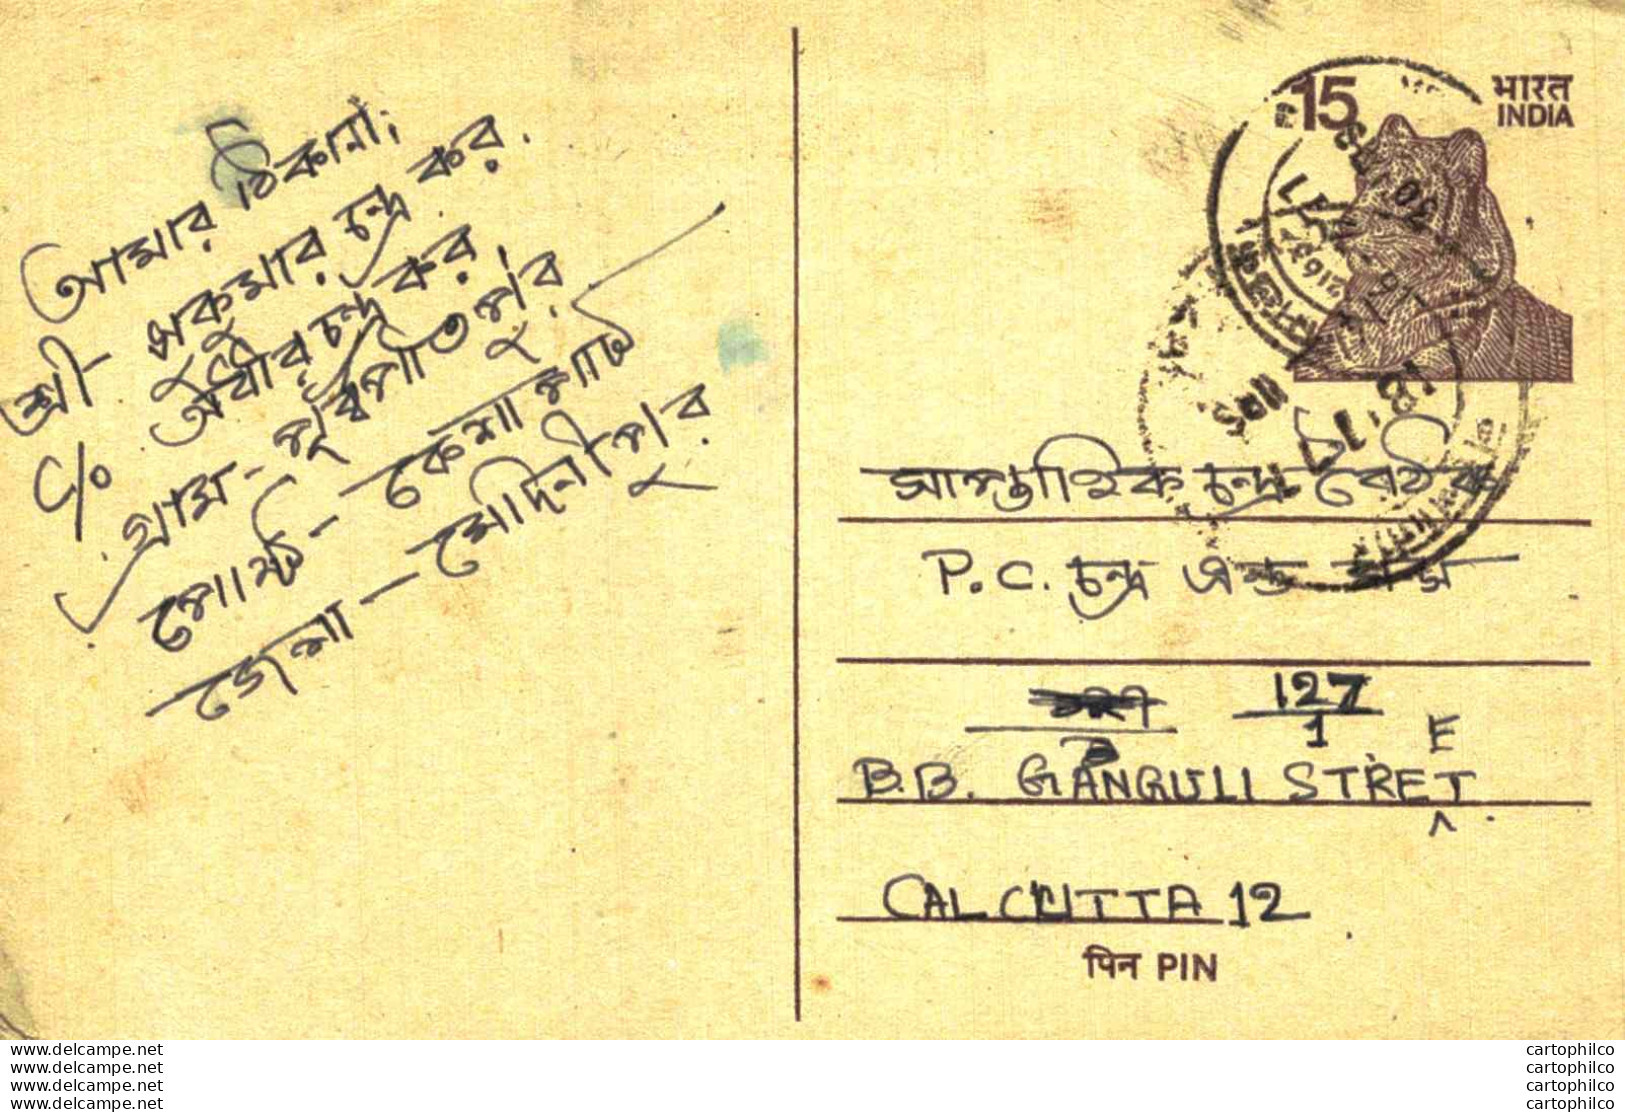 আমার ঠিকানা;
শ্রী সুকুমার চন্দ্র কর.
C/o অধীর চন্দ্র কর,
গ্রাম - পূর্ব্ব গোপালপুর
পোষ্ট - কেশাপাট
জেলা - মেদিনীপুর
15
भारत
INDIA
চন্দ্র বৈঠক
P.C. চন্দ্র এন্ড সন্স
127
1
E
B.B. GANGULI STRET
CALCUTTA 12
पिन PIN
www.delcampe.net
www.delcampe.net
www.delcampe.net
www.delcampe.net
cartophilco
cartophilco
cartophilco
cartophilco